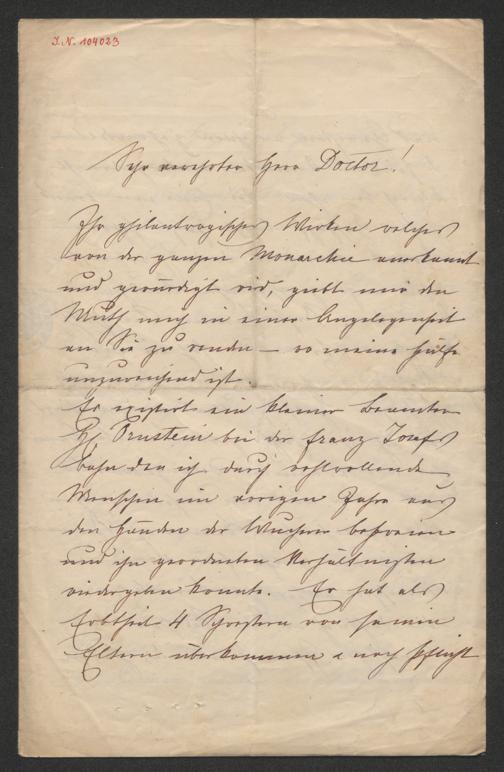 I.N. 104023
Sehr verehrter Herr Doctor!
Ihr philantropisches Wirken welches
von der ganzen Monarchie anerkannt
und gewürdigt wird, giebt mir den
Muth mich in einer Angelegenheit
an Sie zu wenden – wo meine Hülfe
unzureichend ist.
Es existirt ein kleiner Beamter
Ornstein bei der Franz Josefs
bahn den ich durch wohlwollende
Menschen im vorigen Jahre aus
den Händen der Wucherer befreien
und ihn geordneten Verhältnissen
wiedergeben konnte. Er hat als
Erbtheil 4 Schwestern von seinen
Eltern überkommen & noch